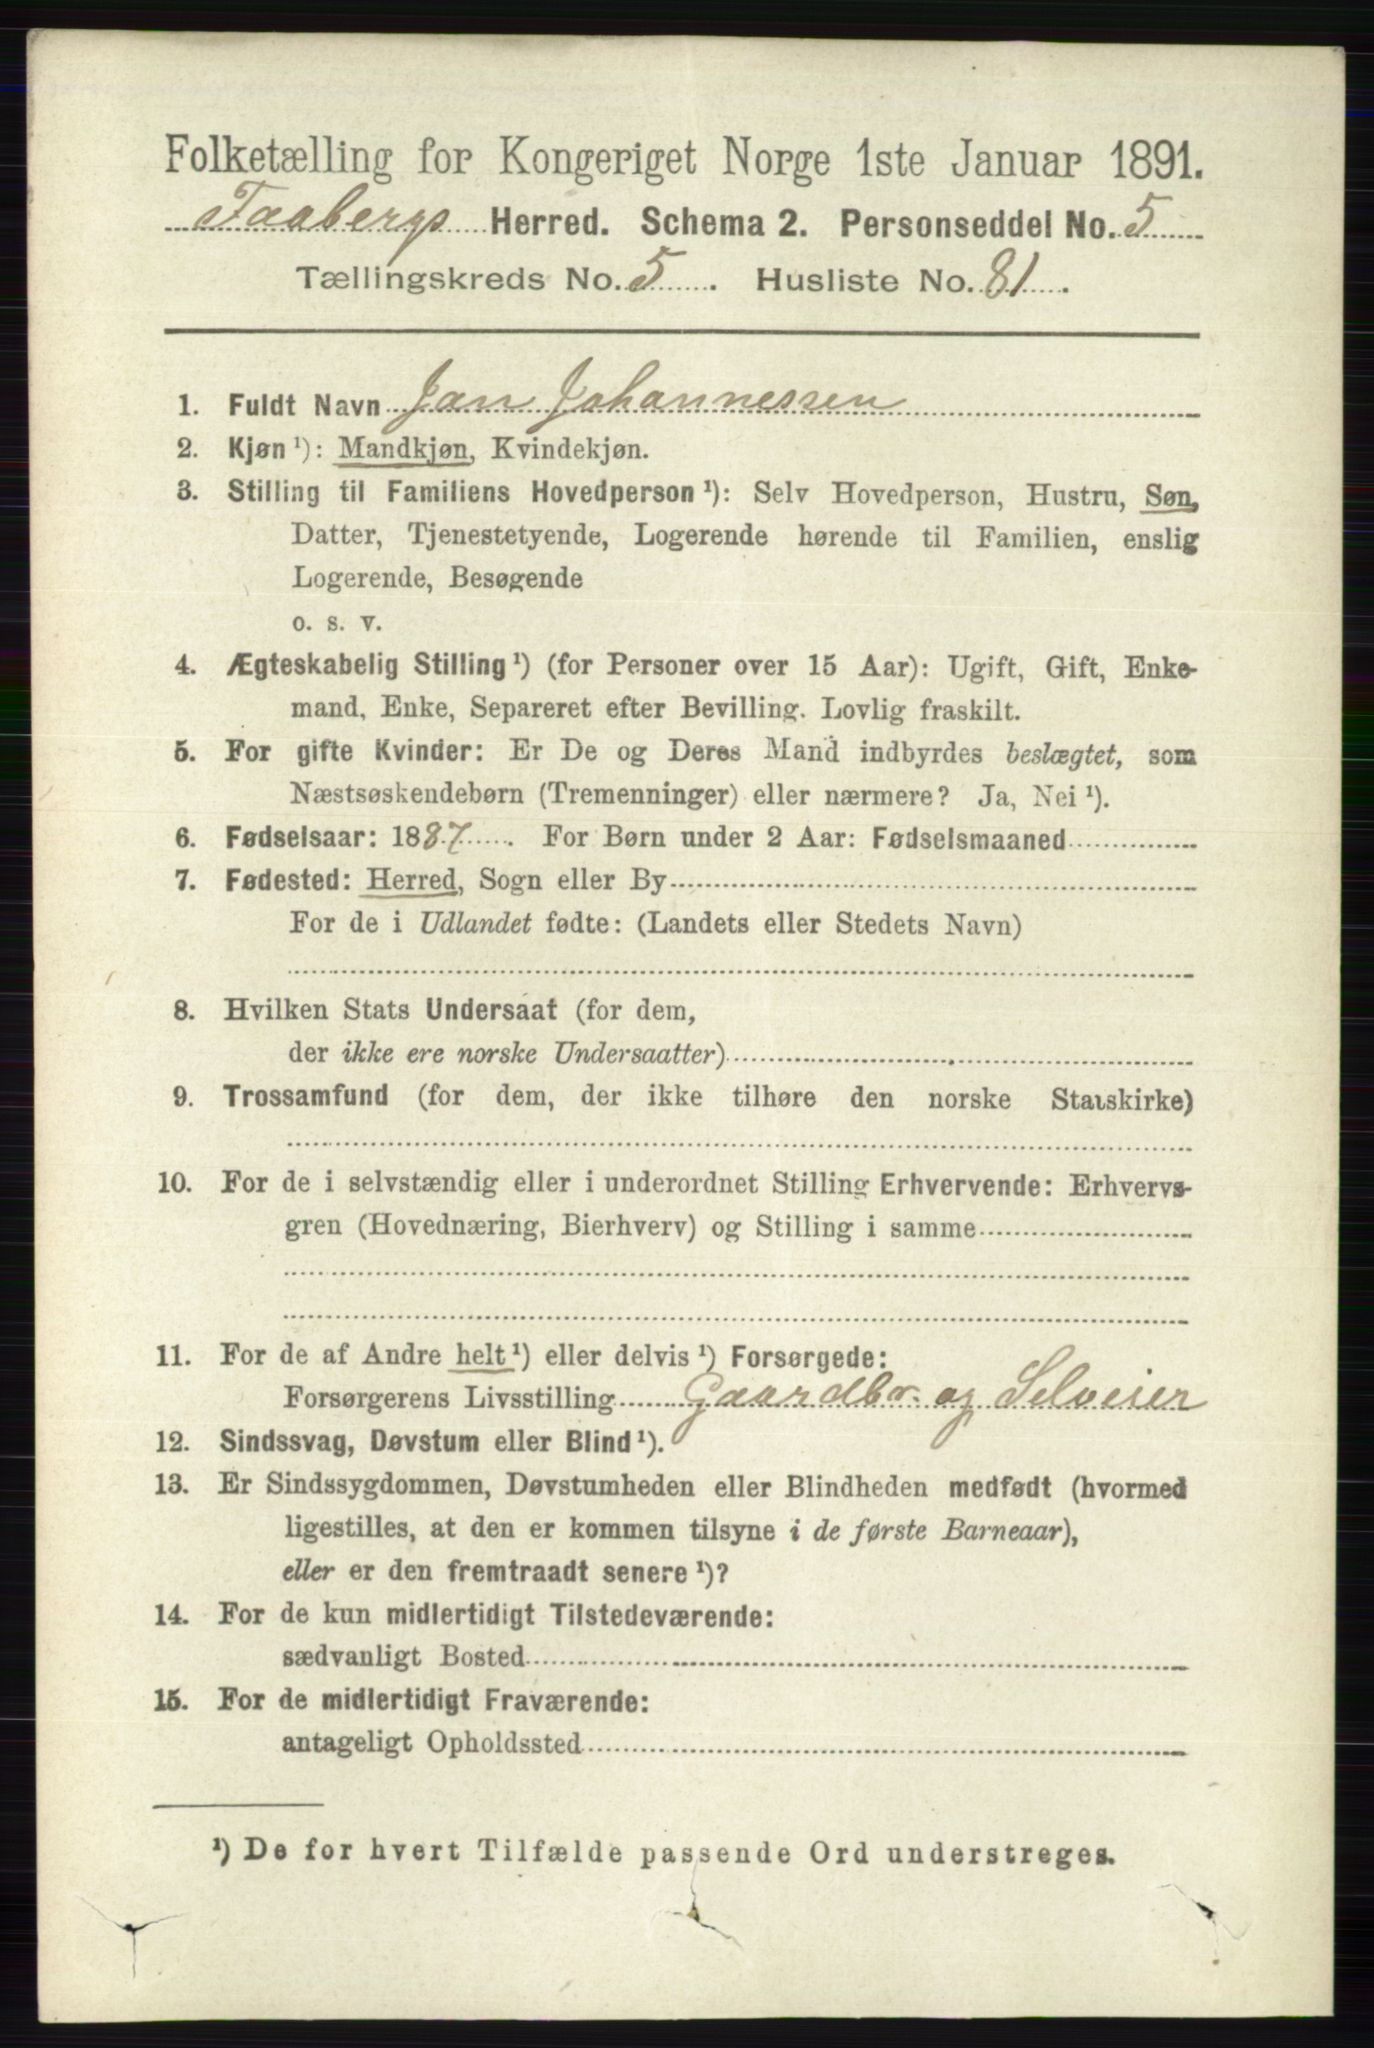 Folketælling for Kongeriget Norge 1ste Januar 1891.
Faabergs Herred. Schema 2. Personseddel No. 5
Tællingskreds No. 5. Husliste No. 81.
1. Fuldt Navn Jan Johannessen
2. Kjøn ¹): Mandkjøn, Kvindekjøn.
3. Stilling til Familiens Hovedperson ¹): Selv Hovedperson, Hustru, Søn,
Datter, Tjenestetyende, Logerende hørende til Familien, enslig
Logerende, Besøgende
o. s. v.
4. Ægteskabelig Stilling ¹) (for Personer over 15 Aar): Ugift, Gift, Enke-
mand, Enke, Separeret efter Bevilling. Lovlig fraskilt.
5. For gifte Kvinder: Er De og Deres Mand indbyrdes beslægtet, som
Næstsøskendebørn (Tremenninger) eller nærmere? Ja, Nei ¹).
6. Fødselsaar: 1887. For Børn under 2 Aar: Fødselsmaaned
7. Fødested: Herred, Sogn eller By
For de i Udlandet fødte: (Landets eller Stedets Navn)
8. Hvilken Stats Undersaat (for dem,
der ikke ere norske Undersaatter)
9. Trossamfund (for dem, der ikke tilhøre den norske Statskirke)
10. For de i selvstændig eller i underordnet Stilling Erhvervende: Erhvervs-
gren (Hovednæring, Bierhverv) og Stilling i samme
11. For de af Andre helt ¹) eller delvis ¹) Forsørgede:
Forsørgerens Livsstilling Gaardbr. og Selveier
12. Sindssvag, Døvstum eller Blind ¹).
13. Er Sindssygdommen, Døvstumheden eller Blindheden medfødt (hvormed
ligestilles, at den er kommen tilsyne i de første Barneaar),
eller er den fremtraadt senere ¹)?
14. For de kun midlertidigt Tilstedeværende:
sædvanligt Bosted
15. For de midlertidigt Fraværende:
antageligt Opholdssted
¹) De for hvert Tilfælde passende Ord understreges.